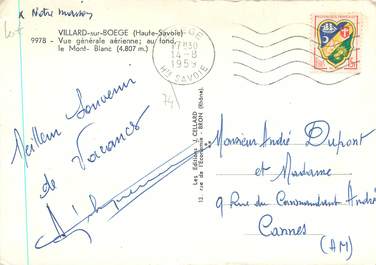 x Notre maison
VILLARD-sur-BOEGE (Haute-Savoie)
9978 - Vue générale aérienne; au fond,
le Mont-Blanc (4.807 m.)
BOEGE
17H30
14-8
1959
Hte SAVOIE
74
Meilleur Souvenir
de
Vacances
Les Editions J. CELLARD
12, rue de l'Economie - BRON (Rhône)
Monsieur André Dupont
et Madame
9 Rue du Commandant André
Cannes
(AM)